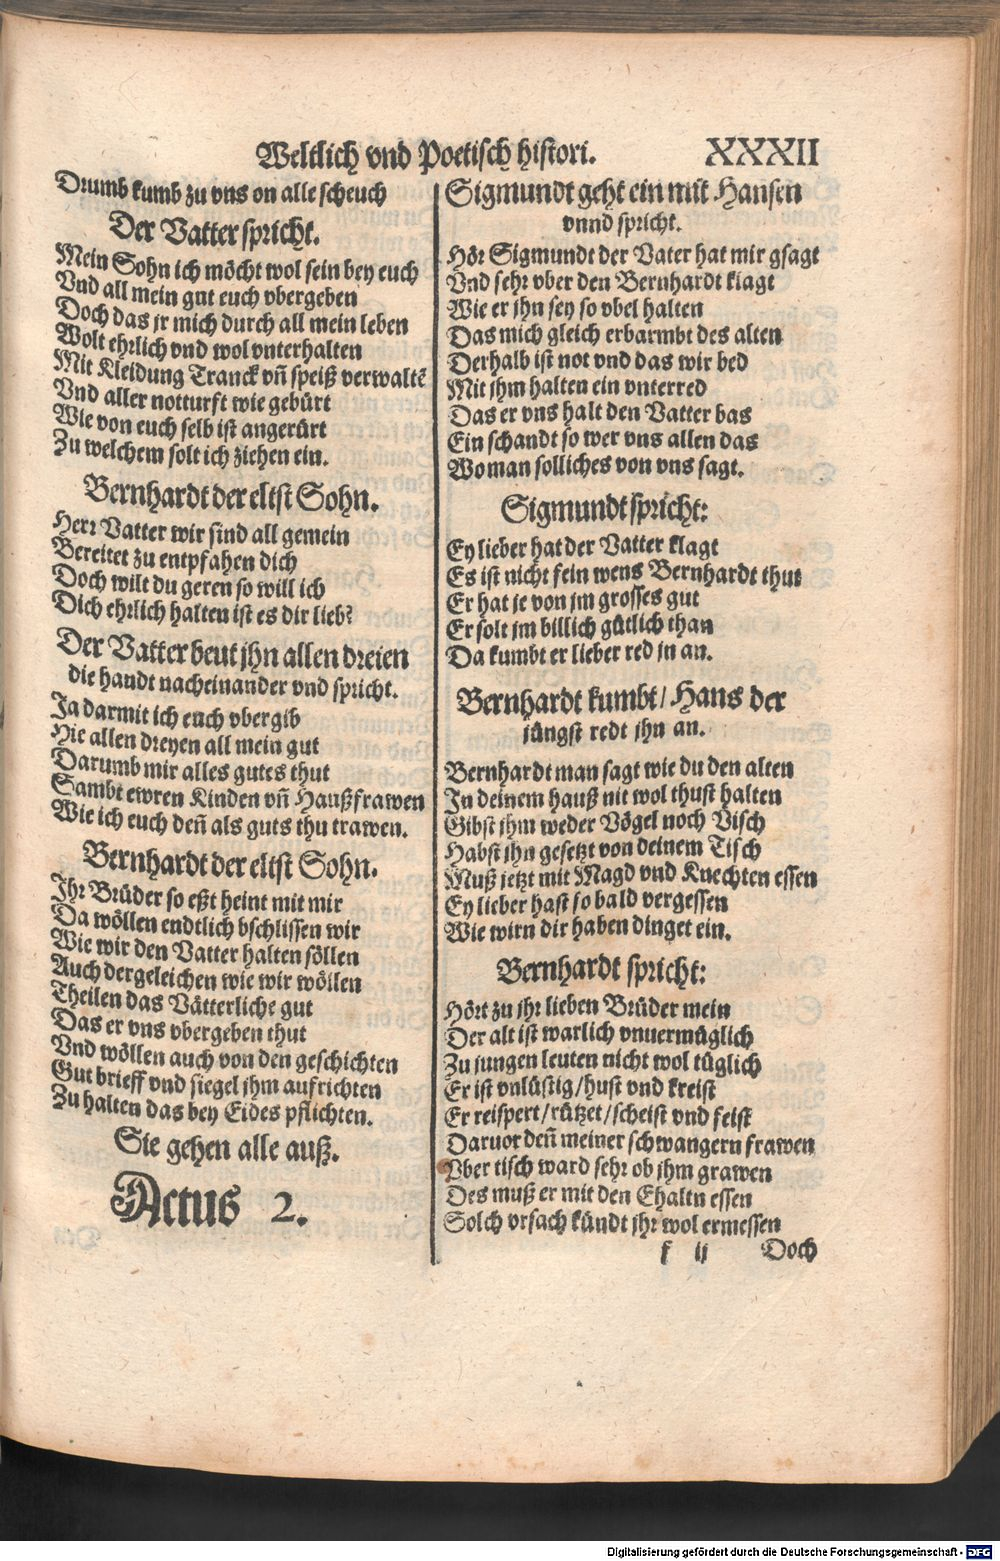 Weltlich vnd Poetisch histori. XXXII
Drumb kumb zu vns on alle scheuch
Der Vatter spricht.
Mein Sohn ich möcht wol sein bey euch
Vnd all mein gut euch vbergeben
Doch das jr mich durch all mein leben
Wolt ehrlich vnd wol vnterhalten
Mit Kleidung Tranck vñ speiß verwaltẽ
Vnd aller notturft wie gebürt
Wie von euch selb ist angerürt
Zu welchem solt ich ziehen ein.
Bernhardt der eltst Sohn.
Herr Vatter wir sind all gemein
Bereitet zu entpfahen dich
Doch wilt du geren so will ich
Dich ehrlich halten ist es dir lieb?
Der Vatter beut jhn allen dreien
die handt nacheinander vnd spricht.
Ja darmit ich euch vbergib
Hie allen dreyen all mein gut
Darumb mir alles gutes thut
Sambt ewren Kinden vñ Haußfrawen
Wie ich euch deñ als guts thu trawen.
Bernhardt der eltst Sohn.
Ihr Brüder so eßt heint mit mir
Da wöllen endtlich bschlissen wir
Wie wir den Vatter halten söllen
Auch dergeleichen wie wir wöllen
Theilen das Vätterliche gut
Das er vns vbergeben thut
Vnd wöllen auch von den geschichten
Gut brieff vnd siegel jhm aufrichten
Zu halten das bey Eides pflichten.
Sie gehen alle auß.
Actus 2.
Sigmundt geht ein mit Hansen
vnnd spricht.
Hör Sigmundt der Vater hat mir gsagt
Vnd sehr vber den Bernhardt klagt
Wie er jhn sey so vbel halten
Das mich gleich erbarmbt des alten
Derhalb ist not vnd das wir bed
Mit jhm halten ein vnterred
Das er vns halt den Vatter bas
Ein schandt so wer vns allen das
Wo man solliches von vns sagt.
Sigmundt spricht:
Ey lieber hat der Vatter klagt
Es ist nicht fein wens Bernhardt thut
Er hat je von jm grosses gut
Er solt jm billich gütlich than
Da kumbt er lieber red jn an.
Bernhardt kumbt / Hans der
jüngst redt jhn an.
Bernhardt man sagt wie du den alten
In deinem hauß nit wol thust halten
Gibst jhm weder Vögel noch Visch
Habst jhn gesetzt von deinem Tisch
Muß jetzt mit Magd vnd Knechten essen
Ey lieber hast so bald vergessen
Wie wirn dir haben dinget ein.
Bernhardt spricht:
Hört zu jhr lieben Brüder mein
Der alt ist warlich vnuermüglich
Zu jungen leuten nicht wol tüglich
Er ist vnlüstig / hust vnd kreist
Er reispert / rützet / scheist vnd feist
Daruor deñ meiner schwangern frawen
Vber tisch ward sehr ob jhm grawen
Des muß er mit den Ehaltn essen
Solch vrsach kündt jhr wol ermessen
f ij Doch
Digitalisierung gefördert durch die Deutsche Forschungsgemeinschaft - DFG